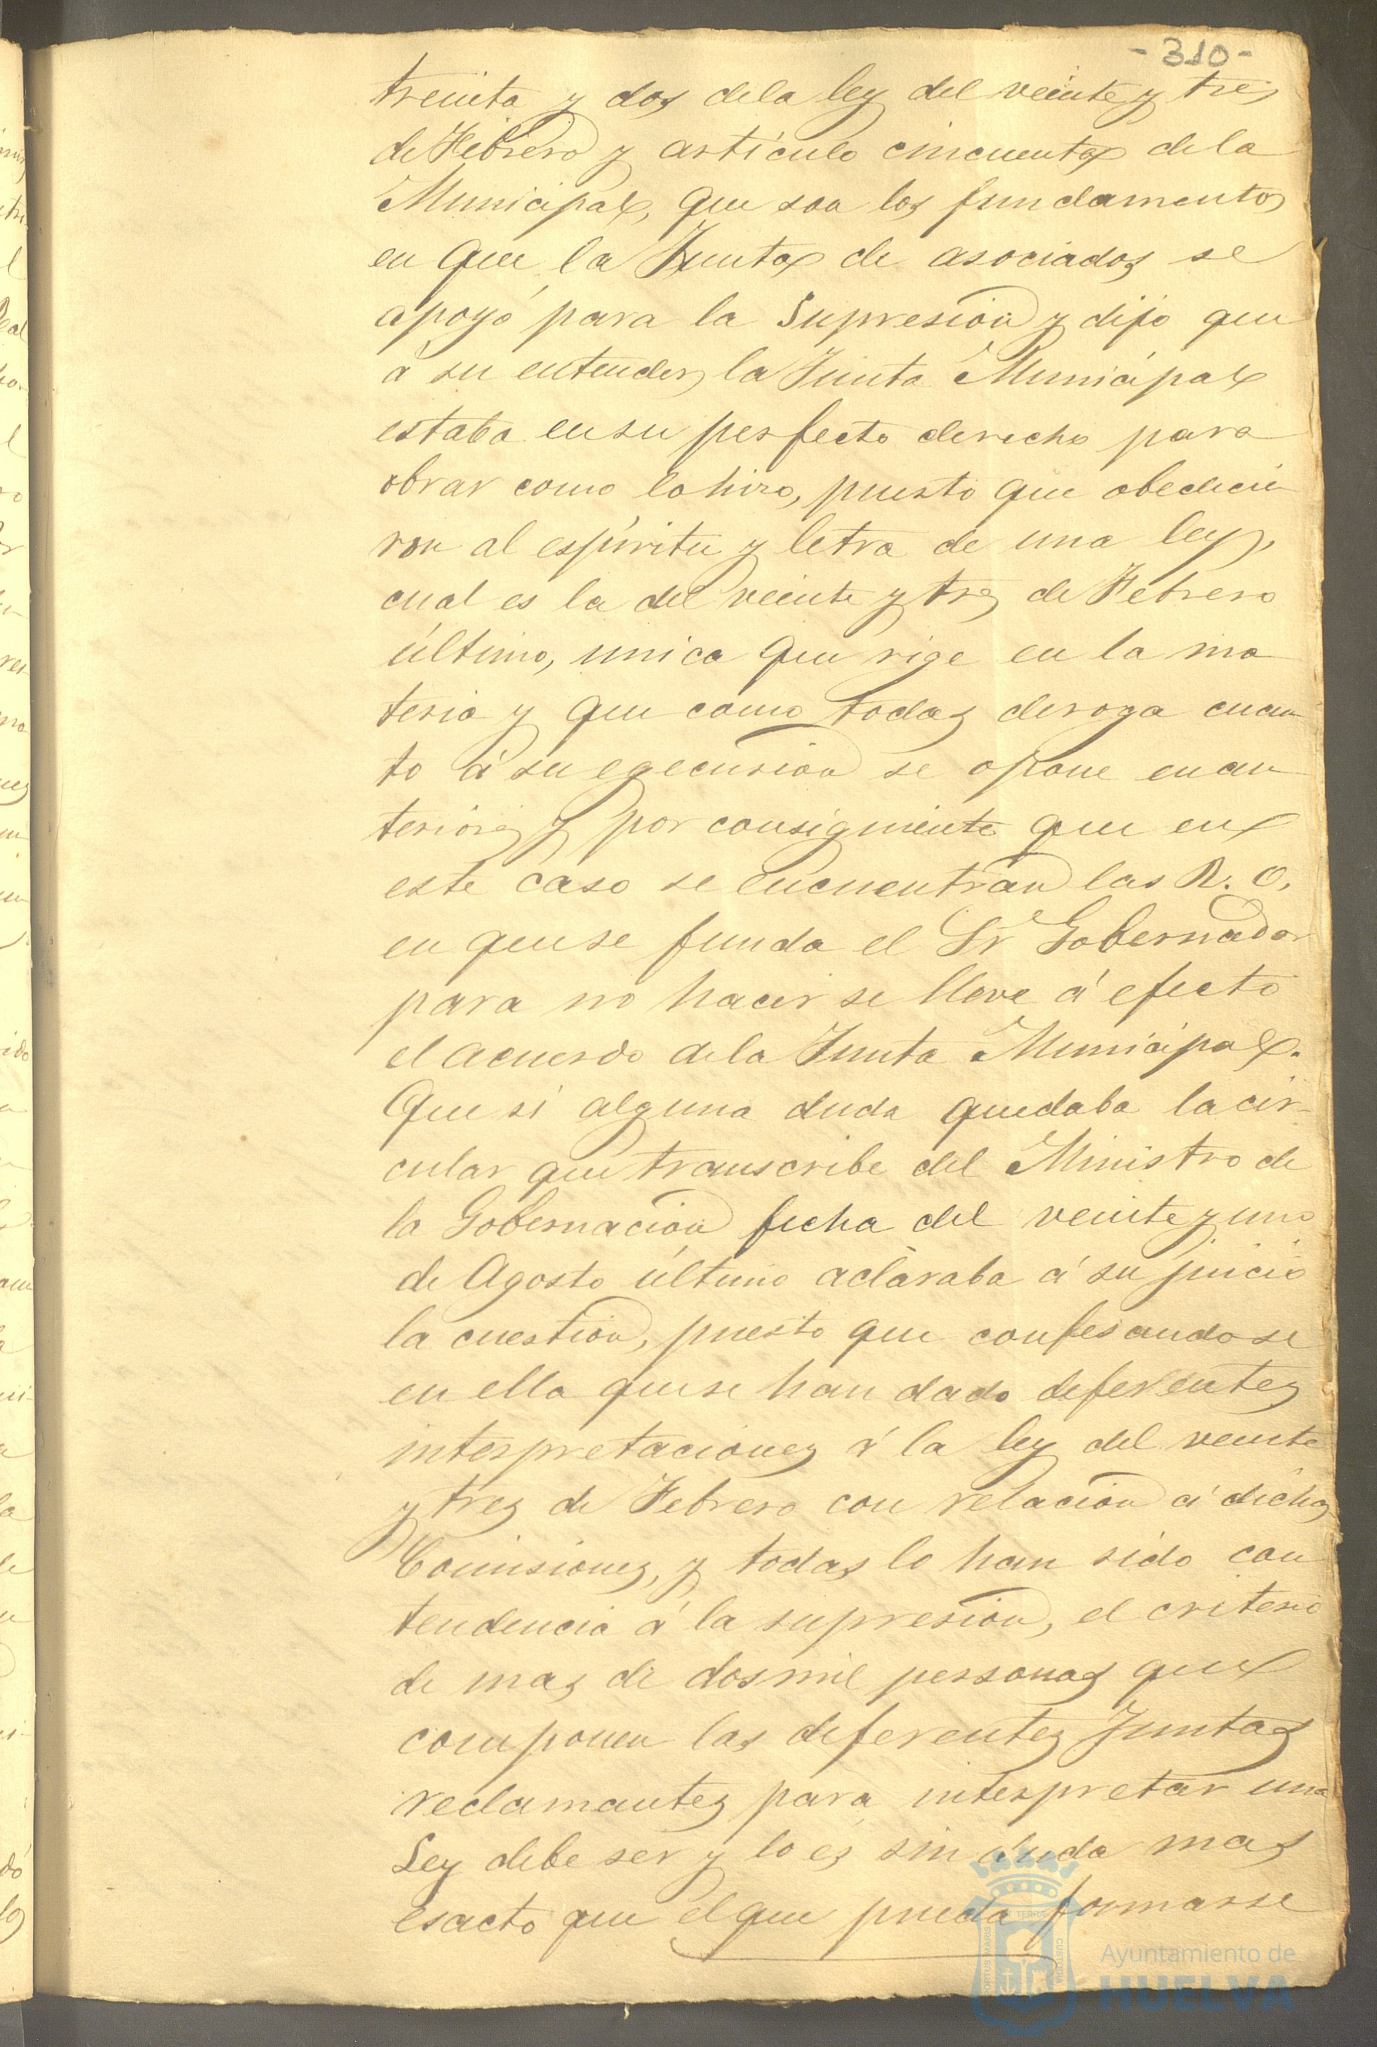 -310-
treinta y dos dela ley del veinte y tres
de Febrero y artículo cincuenta de la
Municipal, que son los fundamentos
en que la Junta de asociados se
apoyó para la Supresion y dijo que
á su entender, la Junta Municipal
estaba ensu perfecto derecho para
obrar como lo hizo, puesto que obedecie
ron al espíritu y letra de una ley,
cual es la del veinte y tres de Febrero
último, unica que rige en la ma
teria y que como todas deroga cuan
to á su egecusion se opone en an
teriores y por consiguiente que en
este caso se encuentran las R. O.
en quese funda el Sr Gobernador
para no hacer se lleve á efecto
el acuerdo dela Junta Municipal.
Que si alguna duda quedaba la cir-
cular que transcribe del Ministro de
la Gobernacion fecha del veinte y uno
de Agosto último aclaraba á su juicio
la cuestion, puesto que confesandose
en ella quese han dado deferentes
interpretaciones á la ley del veinte
y tres de Febrero con relacion á dichas
Comisiones, y todas lo han sido con
tendencia á la supresion, el criterio
de mas de dosmil personas que
componen las deferentes Juntas
reclamantes para interpretar una
Ley debe ser y lo es sin duda mas
esacto que el que pueda formarse
Ayuntamiento de
HUELVA